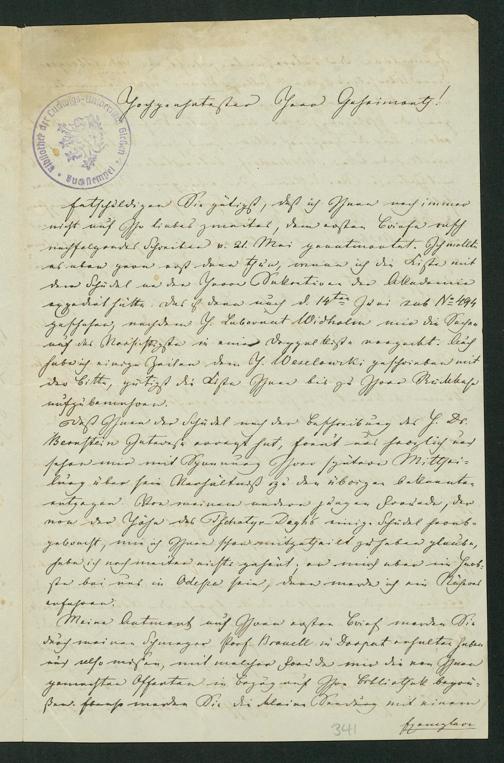 Hochgeehrtester Herr Geheimrath!
Bibliothek der Ludwigs-Universität Gießen
Buchstempel
Entschuldigen Sie gütigst, daß ich Ihnen noch immer
nicht auf Ihr liebes zweites, dem ersten Briefe rasch
nachfolgendes Schreiben v. 21. Mai geantwortet. Ich wollte
es aber gern erst dann thun, wenn ich die Kiste mit
dem Schädel an den Herrn der Akademie
expedirt hätte. Das ist denn auch d. 14ten Juni sub No 494
geschehen, nachdem H. Laborant Widholm mir die Sachen
auf das in einer Doppelkiste verpackt. Auch
habe ich einige Zeilen dem H. Weselowski geschrieben mit
der Bitte, gütigst die Kiste Ihnen bis zu Ihrer Rückkehr
aufzubewahren.
Daß Ihnen der Schädel nach der Beschreibung des H. Dr.
Bernstein Interesse erregt hat, freut uns herzlich und
sehen wir mit Spannung Ihrer spätern Mitthei-
lung über sein Verhältniß zu den übrigen bekannten
entgegen. Von meinem andern jungen Freunde, der
von der Höhe des Tschatyr Daghs einige Schädel herab-
gebracht, wie ich Ihnen schon mitgetheilt zu haben glaube,
habe ich noch weiter nichts gehört; er wird aber im Herb-
ste bei uns in Odessa sein, dann werde ich ein Näheres
erfahren.
Meine Antwort auf Ihren ersten Brief werden Sie
durch meinen Schwager Prof. Brauell in Dorpat erhalten haben
und also wissen, mit welcher Freude wir die von Ihnen
gemachten Offerten in Bezug auf Ihre Bibliothek begrü-
ßen. Ebenso werden Sie die kleine Sendung mit einem
Exemplare
341